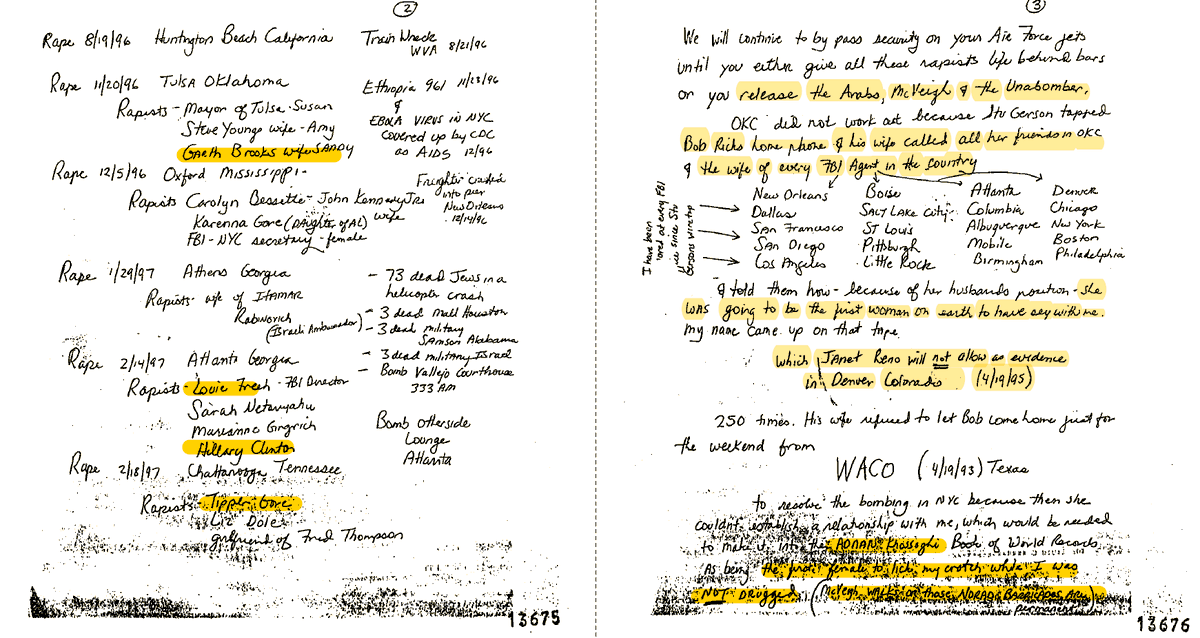 2
Rape 8/19/96 Huntington Beach California Train Wreck
WVA 8/21/96
Rape 11/20/96 Tulsa Oklahoma Ethiopia 961 11/23/96
Rapists - Mayor of Tulsa - Susan &
Steve Youngs wife - Amy EBOLA VIRUS in NYC
Garth Brooks wife SANDY Covered up by CDC
as AIDS 12/96
Rape 12/5/96 Oxford Mississippi -
Freighter crashed
into pier
New Orleans
12/14/96
Rapists Carolyn Bessette - John Kennedy Jrs
wife
Karenna Gore (Daughter of AL)
FBI - NYC secretary - female
Rape 1/29/97 Athens Georgia - 73 dead Jews in a
helicopter crash
Rapists - wife of ITAMAR - 3 dead mall Houston
Rabinovich
(Israeli Ambassador) - 3 dead military
Samson Alabama
- 3 dead military Israel
Rape 2/14/97 Atlanta Georgia - Bomb Vallejo Courthouse
333 AM
Rapists - Louie Freeh - FBI Director
Sarah Netanyahu
Marianne Gingrich Bomb Otherside
Lounge
Atlanta
Hillary Clinton
Rape 2/18/97 Chattanooga Tennessee
Rapists - Tipper Gore
Liz Dole
girlfriend of Fred Thompson
13675
3
We will continue to by pass security on your Air Force jets
until you either give all these rapists life behind bars
or you release the Arabs, McVeigh & the Unabomber.
OKC did not work out because Stu Gerson tapped
Bob Ricks home phone & his wife called all her friends in OKC
& the wife of every FBI Agent in the country
New Orleans Boise Atlanta Denver
Dallas Salt Lake City Columbia Chicago
San Francisco St Louis Albuquerque New York
San Diego Pittsburgh Mobile Boston
Los Angeles Little Rock Birmingham Philadelphia
I have been
at every FBI
since Stu
Gersons wiretap
& told them how - because of her husbands position - she
was going to be the first woman on earth to have sex with me.
My name came up on that tape
which Janet Reno will not allow as evidence
in Denver Colorado (4/19/95)
250 times. His wife refused to let Bob come home just for
the weekend from
WACO (4/19/93) Texas
to resolve the bombing in NYC because then she
couldn't establish a relationship with me, which would be needed
to make it into the ADNAN Khassoghi Book of World Records
As being the first female to lick my crotch while I was
NOT DRUGGED. (McVeigh walks or those NORAD Barricades Are
permanent)
13676